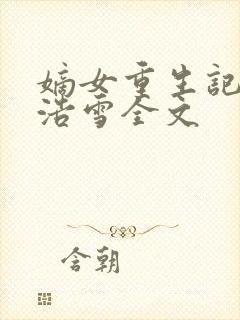 嫡女重生記
浩雪全文
含朝